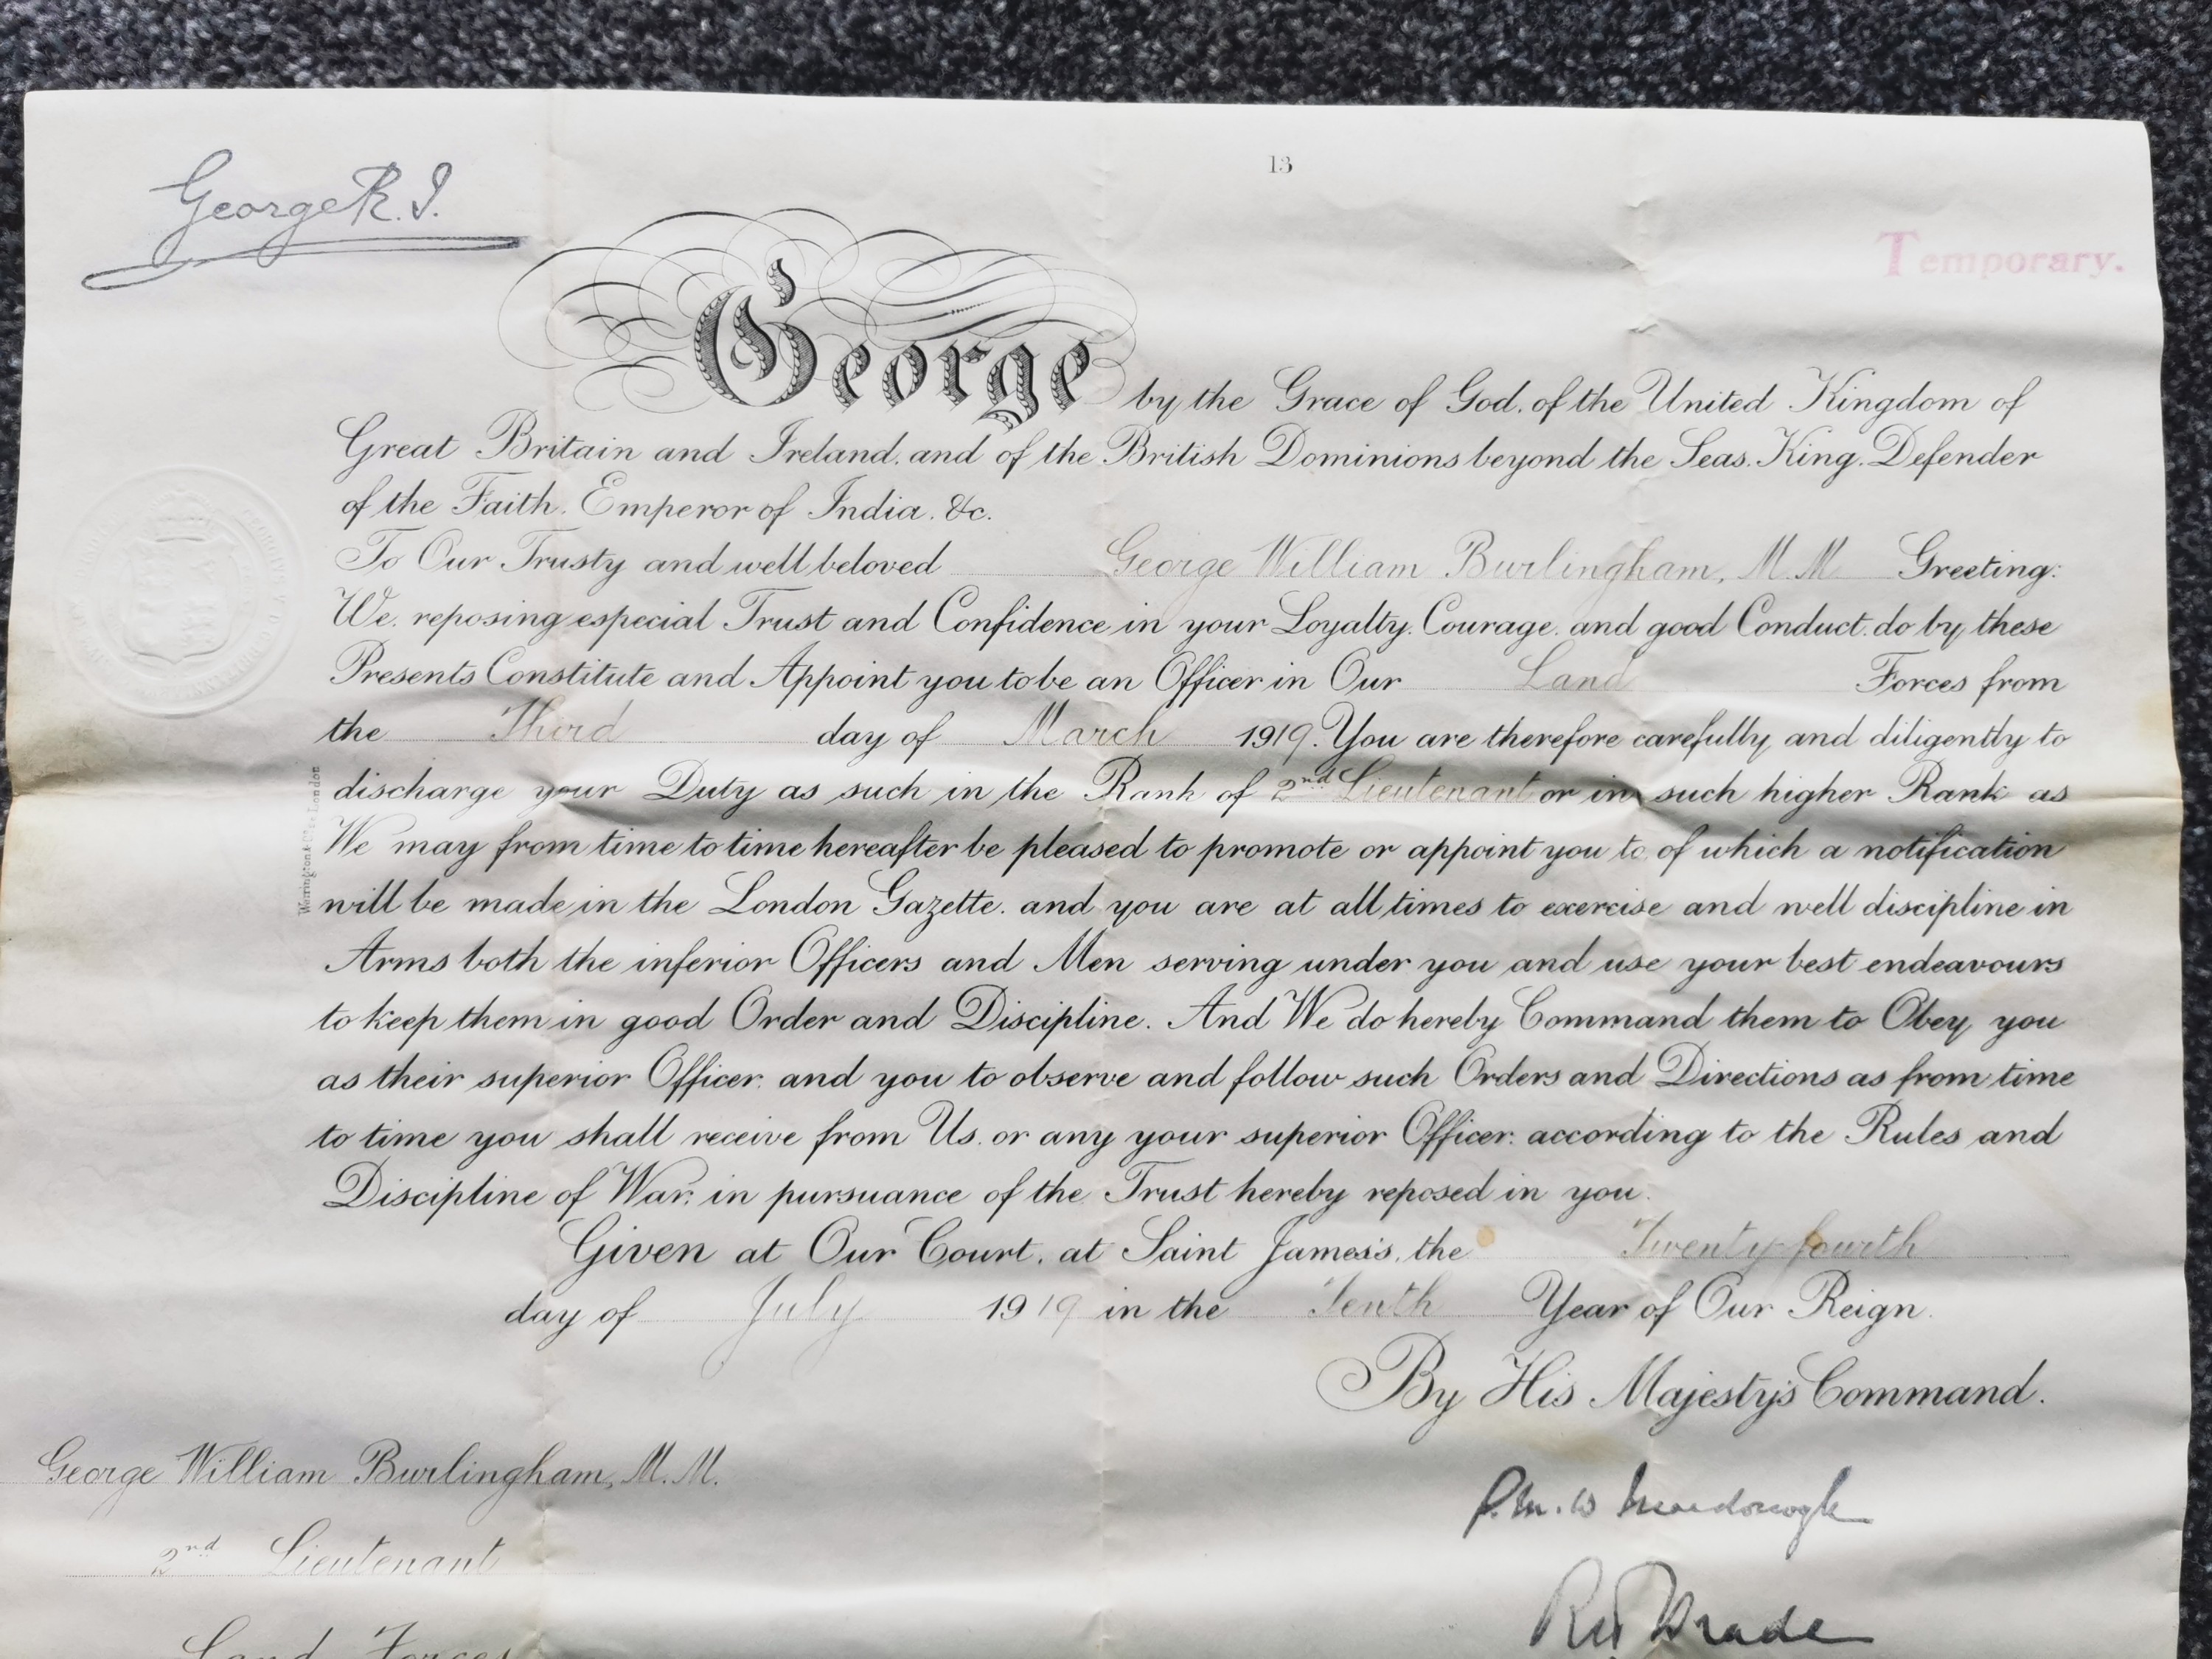 George R.I.
13
Temporary.
George by the Grace of God, of the United Kingdom of
Great Britain and Ireland, and of the British Dominions beyond the Seas, King, Defender
of the Faith, Emperor of India, &c.
To Our Trusty and well beloved George William Burlingham, M.M. Greeting:
We, reposing especial Trust and Confidence in your Loyalty, Courage, and good Conduct, do by these
Presents Constitute and Appoint you to be an Officer in Our Land Forces from
the Third day of March 1919. You are therefore carefully and diligently to
discharge your Duty as such in the Rank of 2nd Lieutenant or in such higher Rank as
We may from time to time hereafter be pleased to promote or appoint you to, of which a notification
will be made in the London Gazette, and you are at all times to exercise and well discipline in
Arms both the inferior Officers and Men serving under you and use your best endeavours
to keep them in good Order and Discipline. And We do hereby Command them to Obey you
as their superior Officer, and you to observe and follow such Orders and Directions as from time
to time you shall receive from Us, or any your superior Officer, according to the Rules and
Discipline of War, in pursuance of the Trust hereby reposed in you.
Given at Our Court, at Saint James's, the Twenty-fourth
day of July 1919 in the Tenth Year of Our Reign.
By His Majesty's Command.
George William Burlingham, M.M.
2nd Lieutenant
Land Forces
London